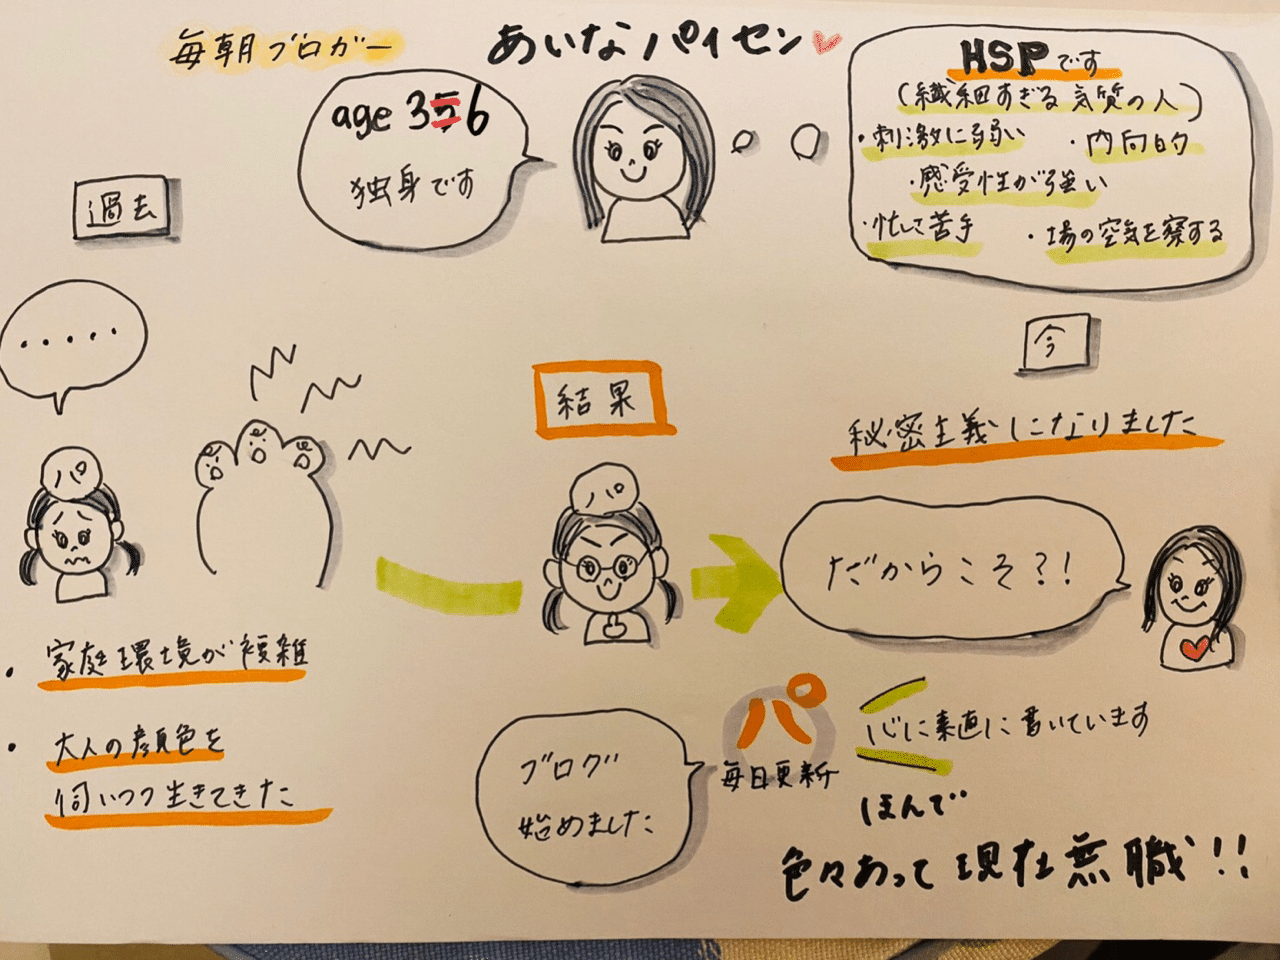 毎朝ブロガー
あいなパイセン
age 356
独身です
HSPです
(繊細すぎる気質の人)
・刺激に弱い
・内向的
・感受性が強い
・忙しさ苦手
・場の空気を察する
過去
.....
パ
・家庭環境が複雑
・大人の顔色を
伺いつつ生きてきた
結果
パ
今
秘密主義になりました
だからこそ?!
ブログ
始めました
パ
毎日更新
心に素直に書いています
ほんで
色々あって現在無職!!